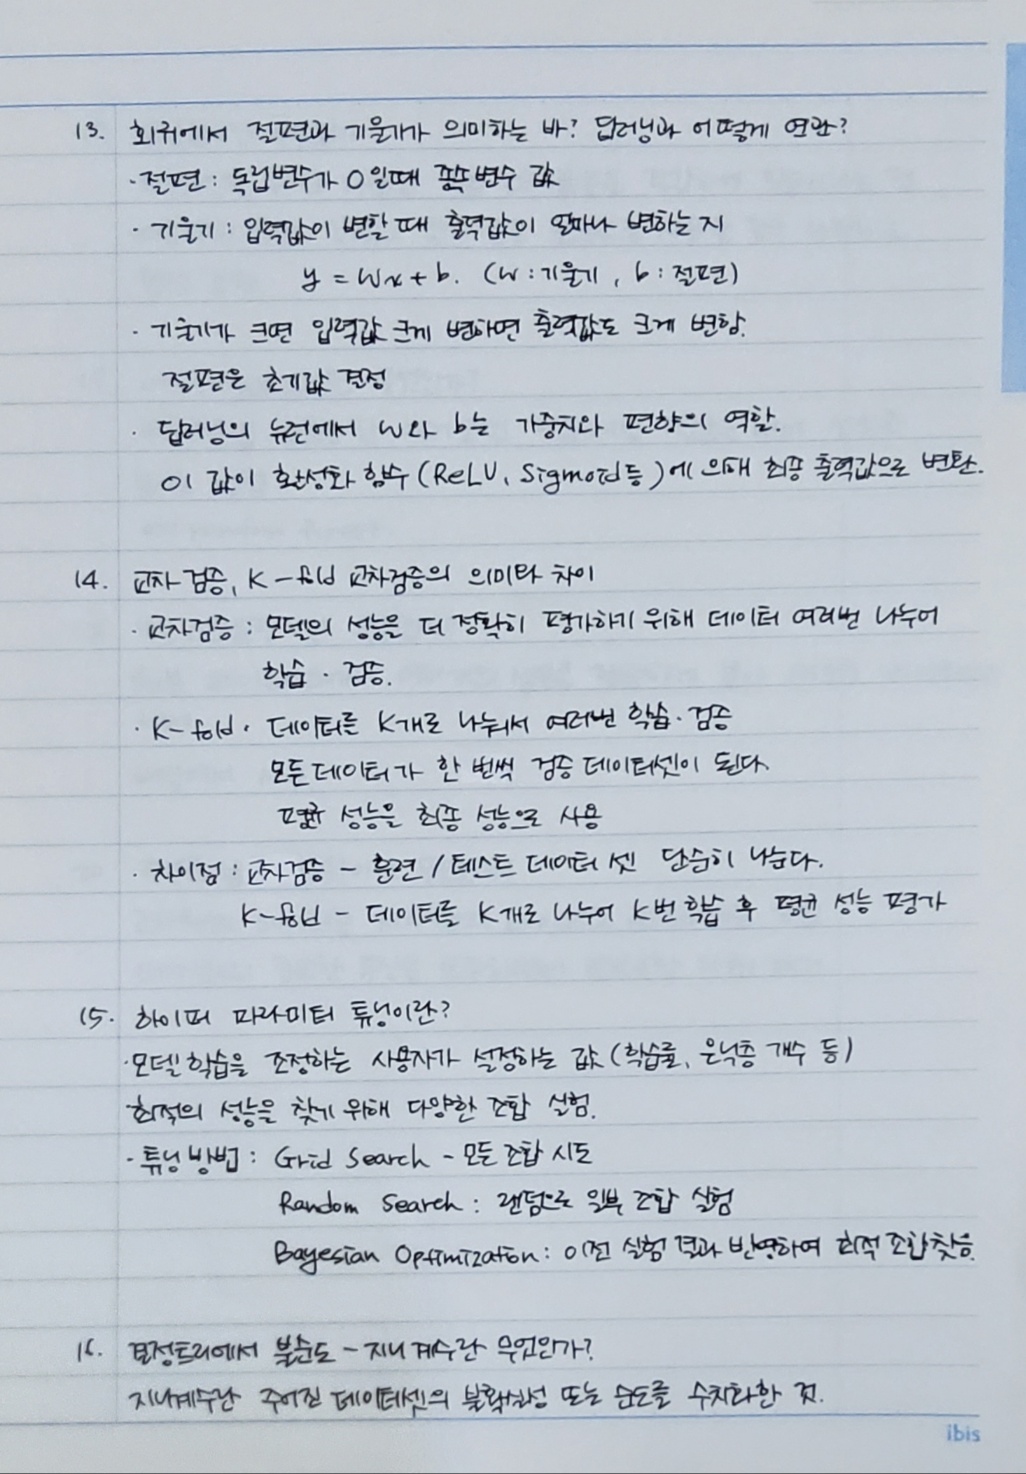 13. 회귀에서 절편과 기울기가 의미하는 바? 딥러닝과 어떻게 연관?
· 절편 : 독립변수가 0일때 종속변수 값
· 기울기 : 입력값이 변할 때 출력값이 얼마나 변하는 지
y = wx + b. (w : 기울기, b : 절편)
· 기울기가 크면 입력값 크게 변하면 출력값도 크게 변함.
절편은 초기값 결정
· 딥러닝의 뉴런에서 w와 b는 가중치와 편향의 역할.
이 값이 활성화 함수 (ReLU, Sigmoid 등)에 의해 최종 출력값으로 변환.
14. 교차 검증, K-fold 교차검증의 의미와 차이
· 교차검증 : 모델의 성능을 더 정확히 평가하기 위해 데이터 여러번 나누어
학습 · 검증.
· K-fold · 데이터를 K개로 나눠서 여러번 학습 · 검증
모든 데이터가 한 번씩 검증 데이터셋이 된다.
평균 성능을 최종 성능으로 사용
· 차이점 : 교차검증 - 훈련 / 테스트 데이터 셋 단순히 나눈다.
K-fold - 데이터를 K개로 나누어 K번 학습 후 평균 성능 평가
15. 하이퍼 파라미터 튜닝이란?
· 모델 학습을 조정하는 사용자가 설정하는 값 (학습률, 은닉층 개수 등)
최적의 성능을 찾기 위해 다양한 조합 실험.
· 튜닝 방법 : Grid Search - 모든 조합 시도
Random Search : 랜덤으로 일부 조합 실험
Bayesian Optimization : 이전 실험 결과 반영하여 최적 조합 찾음.
16. 결정트리에서 불순도 - 지니 계수란 무엇인가?
지니계수란 주어진 데이터셋의 불확실성 또는 순도를 수치화한 것.
ibis